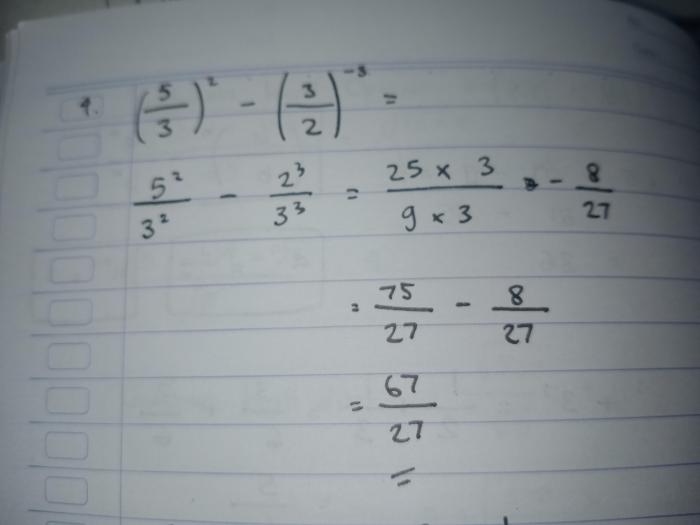 9. (5/3)² - (3/2)⁻³ =
5²/3² - 2³/3³ = 25 × 3/9 × 3 - 8/27
= 75/27 - 8/27
= 67/27